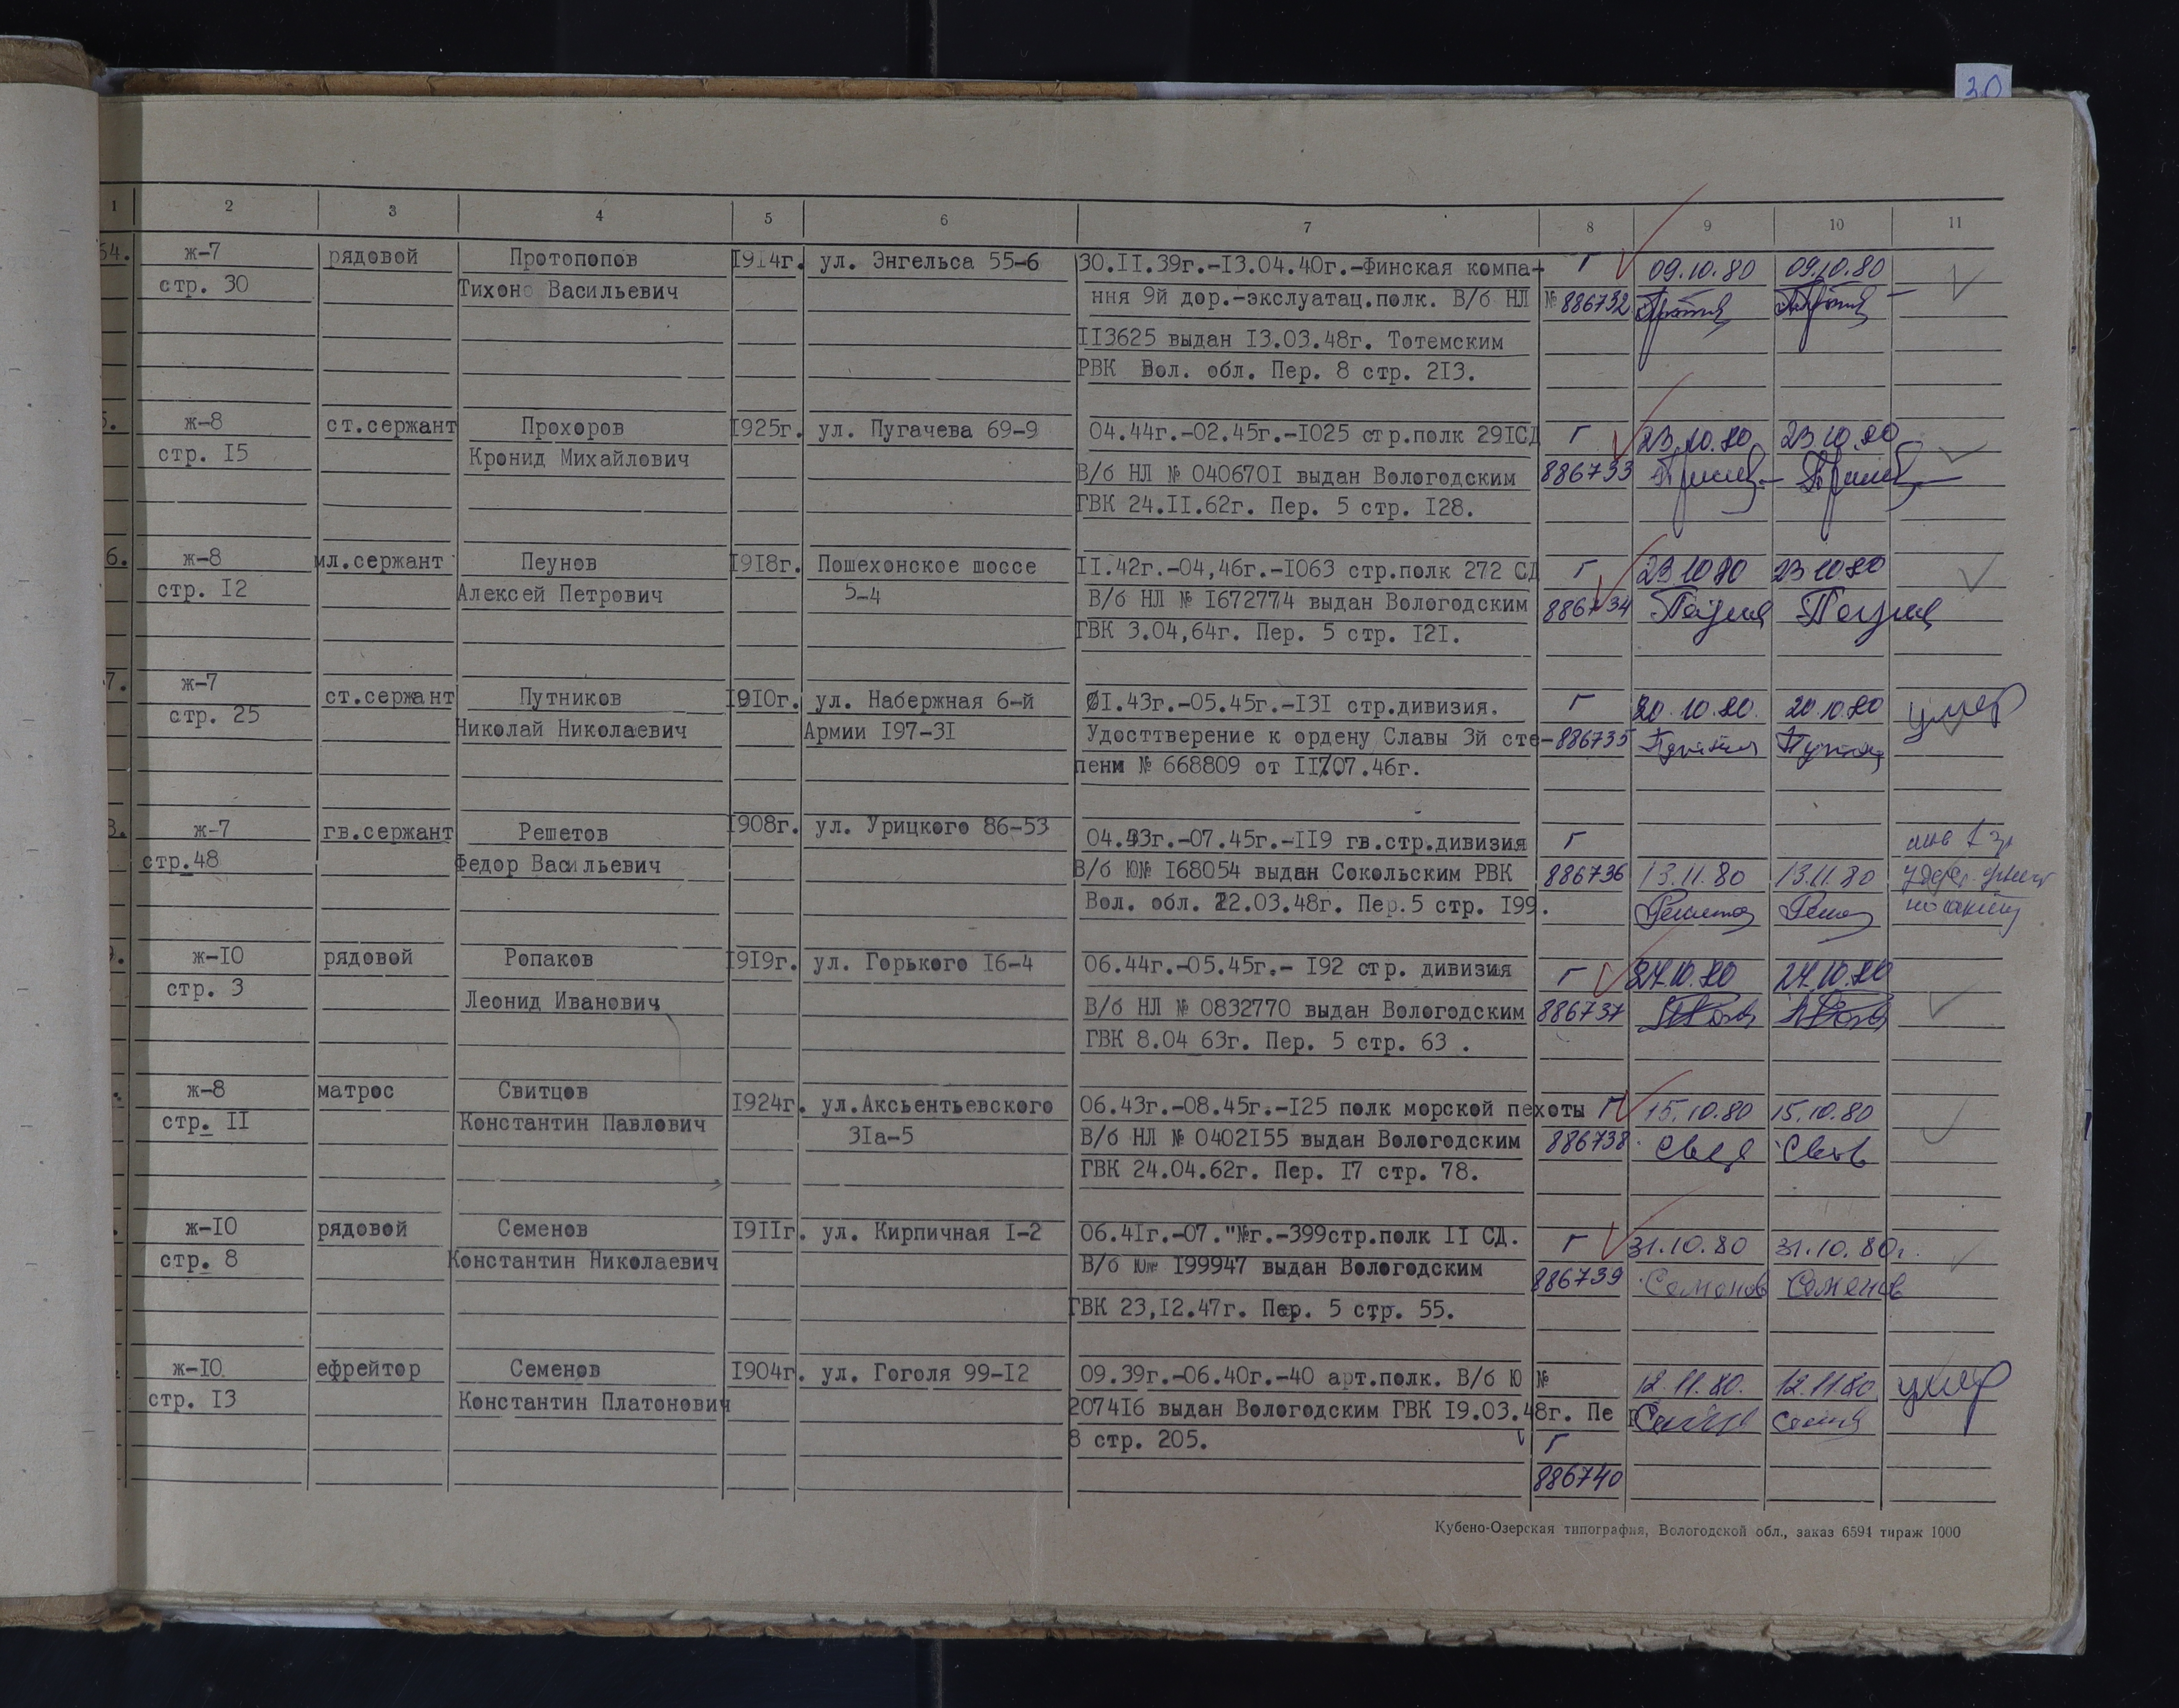 30
1 2 3 4 5 6 7 8 9 10 11
54. ж-7 рядовой Протопопов 1914г. ул. Энгельса 55-6 30.II.39г.-I3.04.40г.-Финская компа- Г 09.10.80 09.10.80
стр. 30 Тихон Васильевич ння 9й дор.-экслуатац.полк. В/б НЛ № 886732
II3625 выдан I3.03.48г. Тотемским
РВК Вол. обл. Пер. 8 стр. 2I3.
5. ж-8 ст.сержант Прохоров I925г. ул. Пугачева 69-9 04.44г.-02.45г.-I025 стр.полк 29IСД Г 23.10.80 23.10.80
стр. I5 Кронид Михайлович В/б НЛ № 040670I выдан Вологодским 886733
ГВК 24.II.62г. Пер. 5 стр. I28.
6. ж-8 мл.сержант Пеунов I9I8г. Пошехонское шоссе II.42г.-04,46г.-I063 стр.полк 272 СД Г 23.10.80 23.10.80
стр. I2 Алексей Петрович 5-4 В/б НЛ № I672774 выдан Вологодским 886734
ГВК 3.04,64г. Пер. 5 стр. I2I.
7. ж-7 ст.сержант Путников I9I0г. ул. Набержная 6-й 0I.43г.-05.45г.-I3I стр.дивизия. Г 20.10.80. 20.10.80 умер
стр. 25 Николай Николаевич Армии I97-3I Удосттверение к ордену Славы 3й сте- 886735
пени № 668809 от II.07.46г.
8. ж-7 гв.сержант Решетов I908г. ул. Урицкого 86-53 04.43г.-07.45г.-II9 гв.стр.дивизия Г
стр.48 Федор Васильевич В/б Ю№ I68054 выдан Сокольским РВК 886736 13.11.80 13.11.80
Вол. обл. 22.03.48г. Пер.5 стр. I99.
9. ж-I0 рядовой Ропаков I9I9г. ул. Горького I6-4 06.44г.-05.45г.- I92 стр. дивизия Г 27.10.80 27.10.80
стр. 3 Леонид Иванович В/б НЛ № 0832770 выдан Вологодским 886737
ГВК 8.04 63г. Пер. 5 стр. 63 .
ж-8 матрос Свитцов I924г. ул.Аксьентьевского 06.43г.-08.45г.-I25 полк морской пехоты Г 15.10.80 15.10.80
стр. II Константин Павлович 3Iа-5 В/б НЛ № 0402I55 выдан Вологодским 886738
ГВК 24.04.62г. Пер. I7 стр. 78.
ж-I0 рядовой Семенов I9IIг. ул. Кирпичная I-2 06.4Iг.-07."№г.-399стр.полк II СД. Г 31.10.80 31.10.80г.
стр. 8 Константин Николаевич В/б Ю№ I99947 выдан Вологодским 886739 Семенов Семенов
ГВК 23,I2.47г. Пер. 5 стр. 55.
ж-I0 ефрейтор Семенов I904г. ул. Гоголя 99-I2 09.39г.-06.40г.-40 арт.полк. В/б Ю № 12.11.80. 12.11.80 умер
стр. I3 Константин Платонович 2074I6 выдан Вологодским ГВК I9.03.48г. Пе р
8 стр. 205. Г
886740
Кубено-Озерская типография, Вологодской обл., заказ 6594 тираж 1000